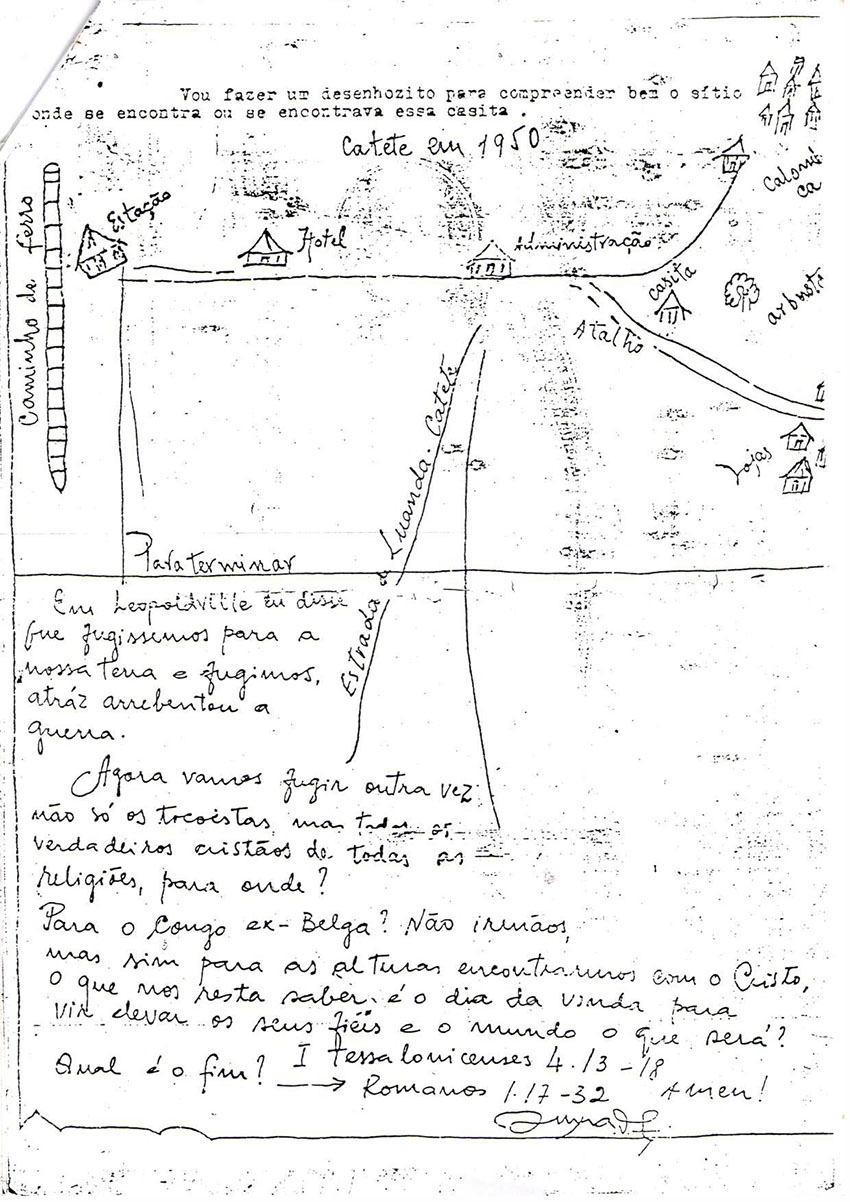 Vou fazer um desenhozito para compreender bem o sítio
onde se encontra ou se encontrava essa casita .
Catete em 1950
Caminho de ferro
Estação
Hotel
Administração
Calomboca
casita
arbusto
Atalho
Lojas
Estrada de Luanda-Catete
Para terminar
Em Leopoldville eu disse
que fugissemos para a
nossa terra e fugimos,
atráz arrebentou a
guerra.
Agora vamos fugir outra vez
não só os tocoistas mas todos os
verdadeiros cristãos de todas as
religiões, para onde?
Para o Congo ex-Belga? Não irmãos,
mas sim para as alturas encontrarmos com o Cristo,
O que nos resta saber é o dia da vinda para
vir elevar os seus fiéis e o mundo o que será?
Qual é o fim? I Tessalonicenses 4.13-18
Romanos 1.17-32 Amen!